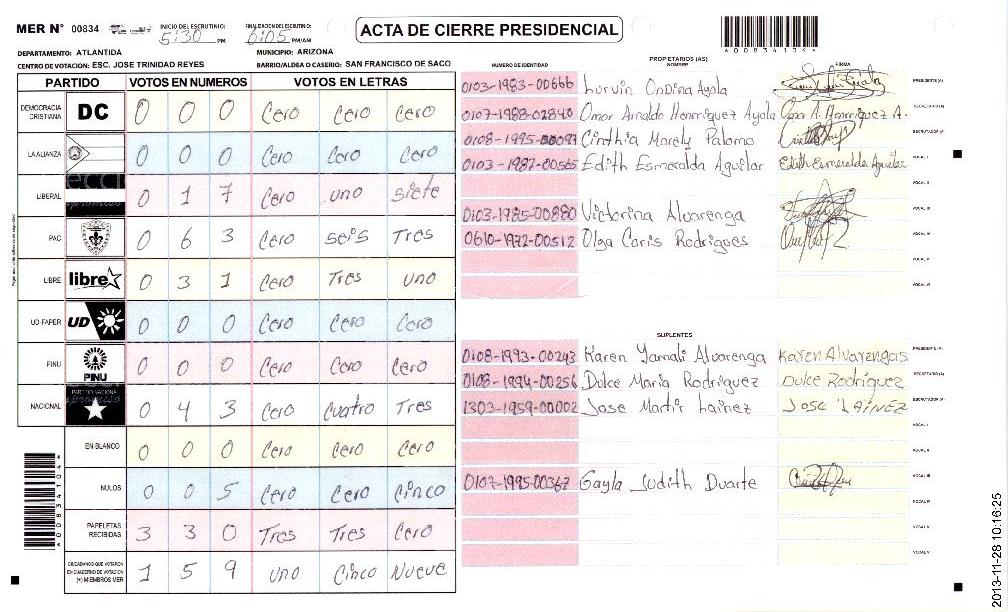 MER N° 00834
INICIO DEL ESCRUTINIO: 5:30 PM
FINALIZACION DEL ESCRUTINIO: 6:05 PM/AM
ACTA DE CIERRE PRESIDENCIAL
DEPARTAMENTO: ATLANTIDA
MUNICIPIO: ARIZONA
CENTRO DE VOTACION: ESC. JOSE TRINIDAD REYES
BARRIO/ALDEA O CASERIO: SAN FRANCISCO DE SACO
PARTIDO VOTOS EN NUMEROS VOTOS EN LETRAS
DEMOCRACIA CRISTIANA DC 0 0 0 Cero Cero Cero
LA ALIANZA 0 0 0 Cero Cero Cero
LIBERAL 0 1 7 Cero uno siete
PAC 0 6 3 Cero seis Tres
LIBRE libre 0 3 1 Cero Tres uno
UD-FAPER UD 0 0 0 Cero Cero Cero
PINU PINU 0 0 0 Cero Cero Cero
NACIONAL 0 4 3 Cero Cuatro Tres
EN BLANCO 0 0 0 Cero Cero Cero
NULOS 0 0 5 Cero Cero Cinco
PAPELETAS RECIBIDAS 3 3 0 Tres Tres Cero
CIUDADANOS QUE VOTARON EN CUADERNO DE VOTACION (+) MIEMBROS MER 1 5 9 uno Cinco Nueve
PROPIETARIOS (AS)
NUMERO DE IDENTIDAD NOMBRE FIRMA
0103-1983-00666 Lurvin Ondina Ayala PRESIDENTE (A)
0107-1988-02840 Omar Arnaldo Henrriquez Ayala Omar A. Henrriquez A. SECRETARIO (A)
Cinthia Marely Palomo ESCRUTADOR (A)
0103-1987-00565 Edith Esmeralda Aguilar Edith Esmeralda Aguilar VOCAL I
VOCAL II
0103-1985-00880 Victorina Alvarenga VOCAL III
0610-1972-00512 Olga Caris Rodrigues VOCAL IV
VOCAL V
VOCAL VI
SUPLENTES
0108-1993-00243 Karen Yamali Alvarenga Karen Alvarengas PRESIDENTE (A)
0108-1994-00256 Dulce Maria Rodriguez Dulce Rodriguez SECRETARIO (A)
1303-1959-00002 Jose Martir Lainez JOSE LAINEZ ESCRUTADOR (A)
VOCAL I
VOCAL II
0107-1995-00367 Gayla Judith Duarte VOCAL III
VOCAL IV
VOCAL V
VOCAL VI
2013-11-28 10:16:25